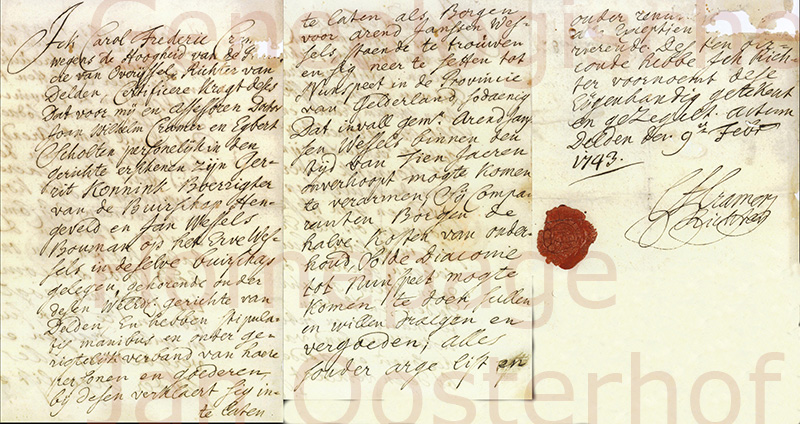 Ick Carol Frederic
wegens de Hoogheid van de
tie van Overijssel Richter van
Delden, Certificere kragt deses
Dat voor mij en Assessoren
Willem Cramer en Egbert
Scholten persoonelijk in den
gerichte erschenen zijn Ger-
rit Konnink Boerrigter
van de Buirschap Hen-
geveld en Jan Wessels
Bouman op het Erve Wes-
sels in deselve buirschap
gelegen, gehorende onder
desen gerichte van
Delden. En hebben stipula-
tis manibus en onder ge-
rigtelijk verband van haere
persoonen en goederen,
bij desen verklaert sig in-
te laten
te laten als Borgen
voor Arend Janssen Wes-
sels staende te trouwen
en sig neer te setten tot
Nunspeet in de Provincie
van Gelderland, sodaenig
Dat invall gem. Arend Jans
sen Wessels binnen den
tijd van tien jaeren
onverhoopt mogte komen
te verarmen, Sij Compa-
ranten Borgen de
halve kosten van onder-
houd, So de Diaconie
tot Nunspeet mogte
komen te doen sullen
en willen draegen en
vergoeden; alles
sonder arge list en
onder renu
exceptien
Des ten oir-
conde hebbe Ick Rich-
ter voornoemt dese
Eigenhandig getekent
en gezegelt. Actum
Delden den 9de Febr
1743.
Cramer
Richter
Homepage
Jan Oosterhof